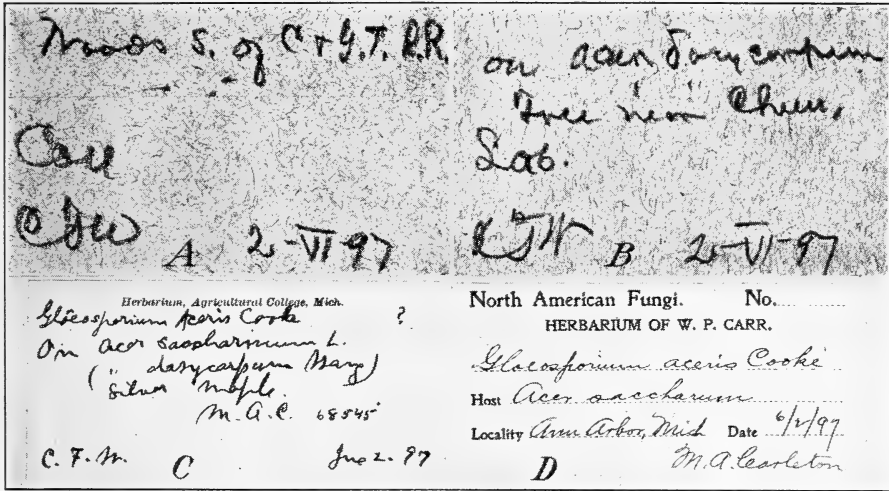 Woods S. of C & G.T. R.R.
Coll
CFW A 2-VI-97
on acer dasycarpum
Tree near Chem.
Lab.
CFW B 2-VI-97
Herbarium, Agricultural College, Mich.
Gloeosporium Aceris Cooke ?
On acer saccharinum L.
( " dasycarpum
Silver maple.
M. A. C. 68545
C. F. W. C June 2. 97
North American Fungi. No.
HERBARIUM OF W. P. CARR.
Gloeosporium aceris Cooke
Host Acer saccharum
Locality Ann Arbor, Mich Date 6/2/97
D M. A. Carleton